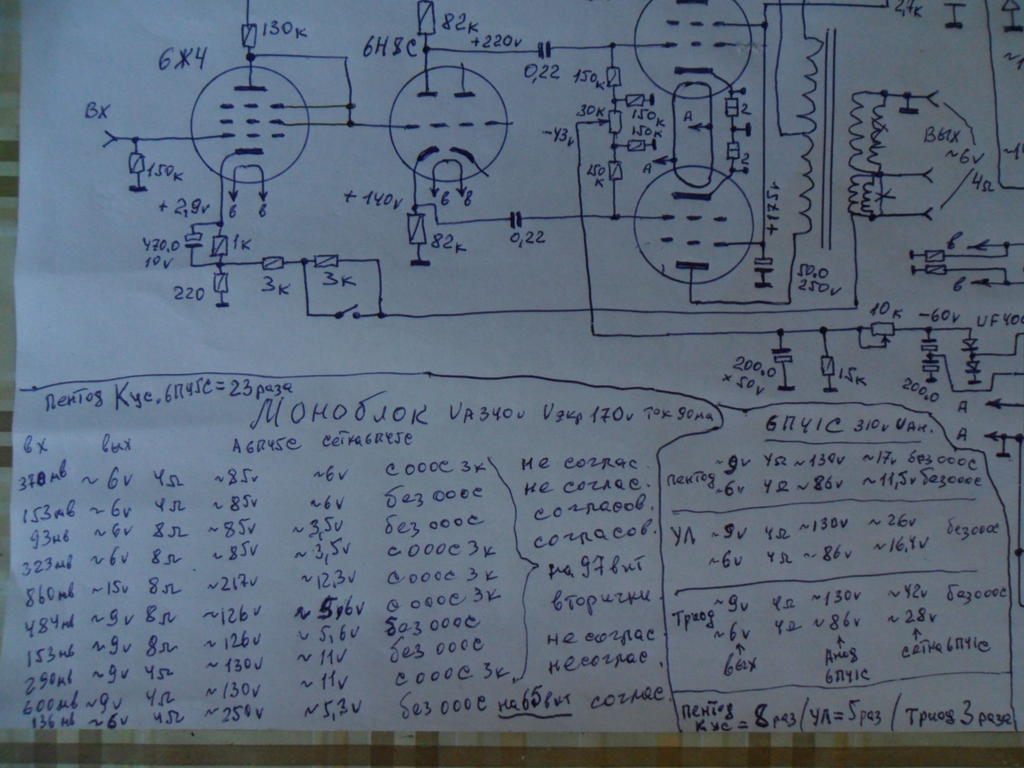 130к
82к
2,7к
6Ж4
6Н8С
+220v
0,22
150к
30к
150к
150к
-43v
2
2
А
А
ВХ
150к
+2,9v
6 8
+140v
6 8
+175v
ВЫХ
~6v
4Ω
470.0
10v
1к
82к
0,22
220
3к
3к
50.0
250v
10к
-60v
UF400
200.0
×50v
15к
200.0
в
в
А
А
пентод Кус.6П45С=23раза
Моноблок UА340v Uэкр170v ток90ма
вх вых А6П45С сетка6П45С
370мв ~6v 4Ω ~85v ~6v с ОООС 3к не соглас.
153мв ~6v 4Ω ~85v ~6v без ОООС не соглас.
93мв ~6v 8Ω ~85v ~3,5v без ОООС согласов.
323мв ~6v 8Ω ~85v ~3,5v с ОООС 3к согласов.
860мв ~15v 8Ω ~217v ~12,3v с ОООС 3к на 97вит
484мв ~9v 8Ω ~126v ~5,6v с ОООС 3к вторички
153мв ~9v 8Ω ~126v ~5,6v без ОООС
290мв ~9v 4Ω ~130v ~11v без ОООС не соглас
600мв ~9v 4Ω ~130v ~11v с ОООС 3к несоглас.
136мв ~6v 4Ω ~250v ~5,3v без ОООС на65вит соглас
6П41С 310v UАн.
пентод ~9v 4Ω ~130v ~17v без ОООС
~6v 4Ω ~86v ~11,5v без ОООС
УЛ ~9v 4Ω ~130v ~26v без ОООС
~6v 4Ω ~86v ~16,4v
Триод ~9v 4Ω ~130v ~42v без ОООС
~6v 4Ω ~86v ~28v
вых Анод 6П41С сетка6П41С
пентод Кус=8раз/УЛ=5раз/Триод 3раза